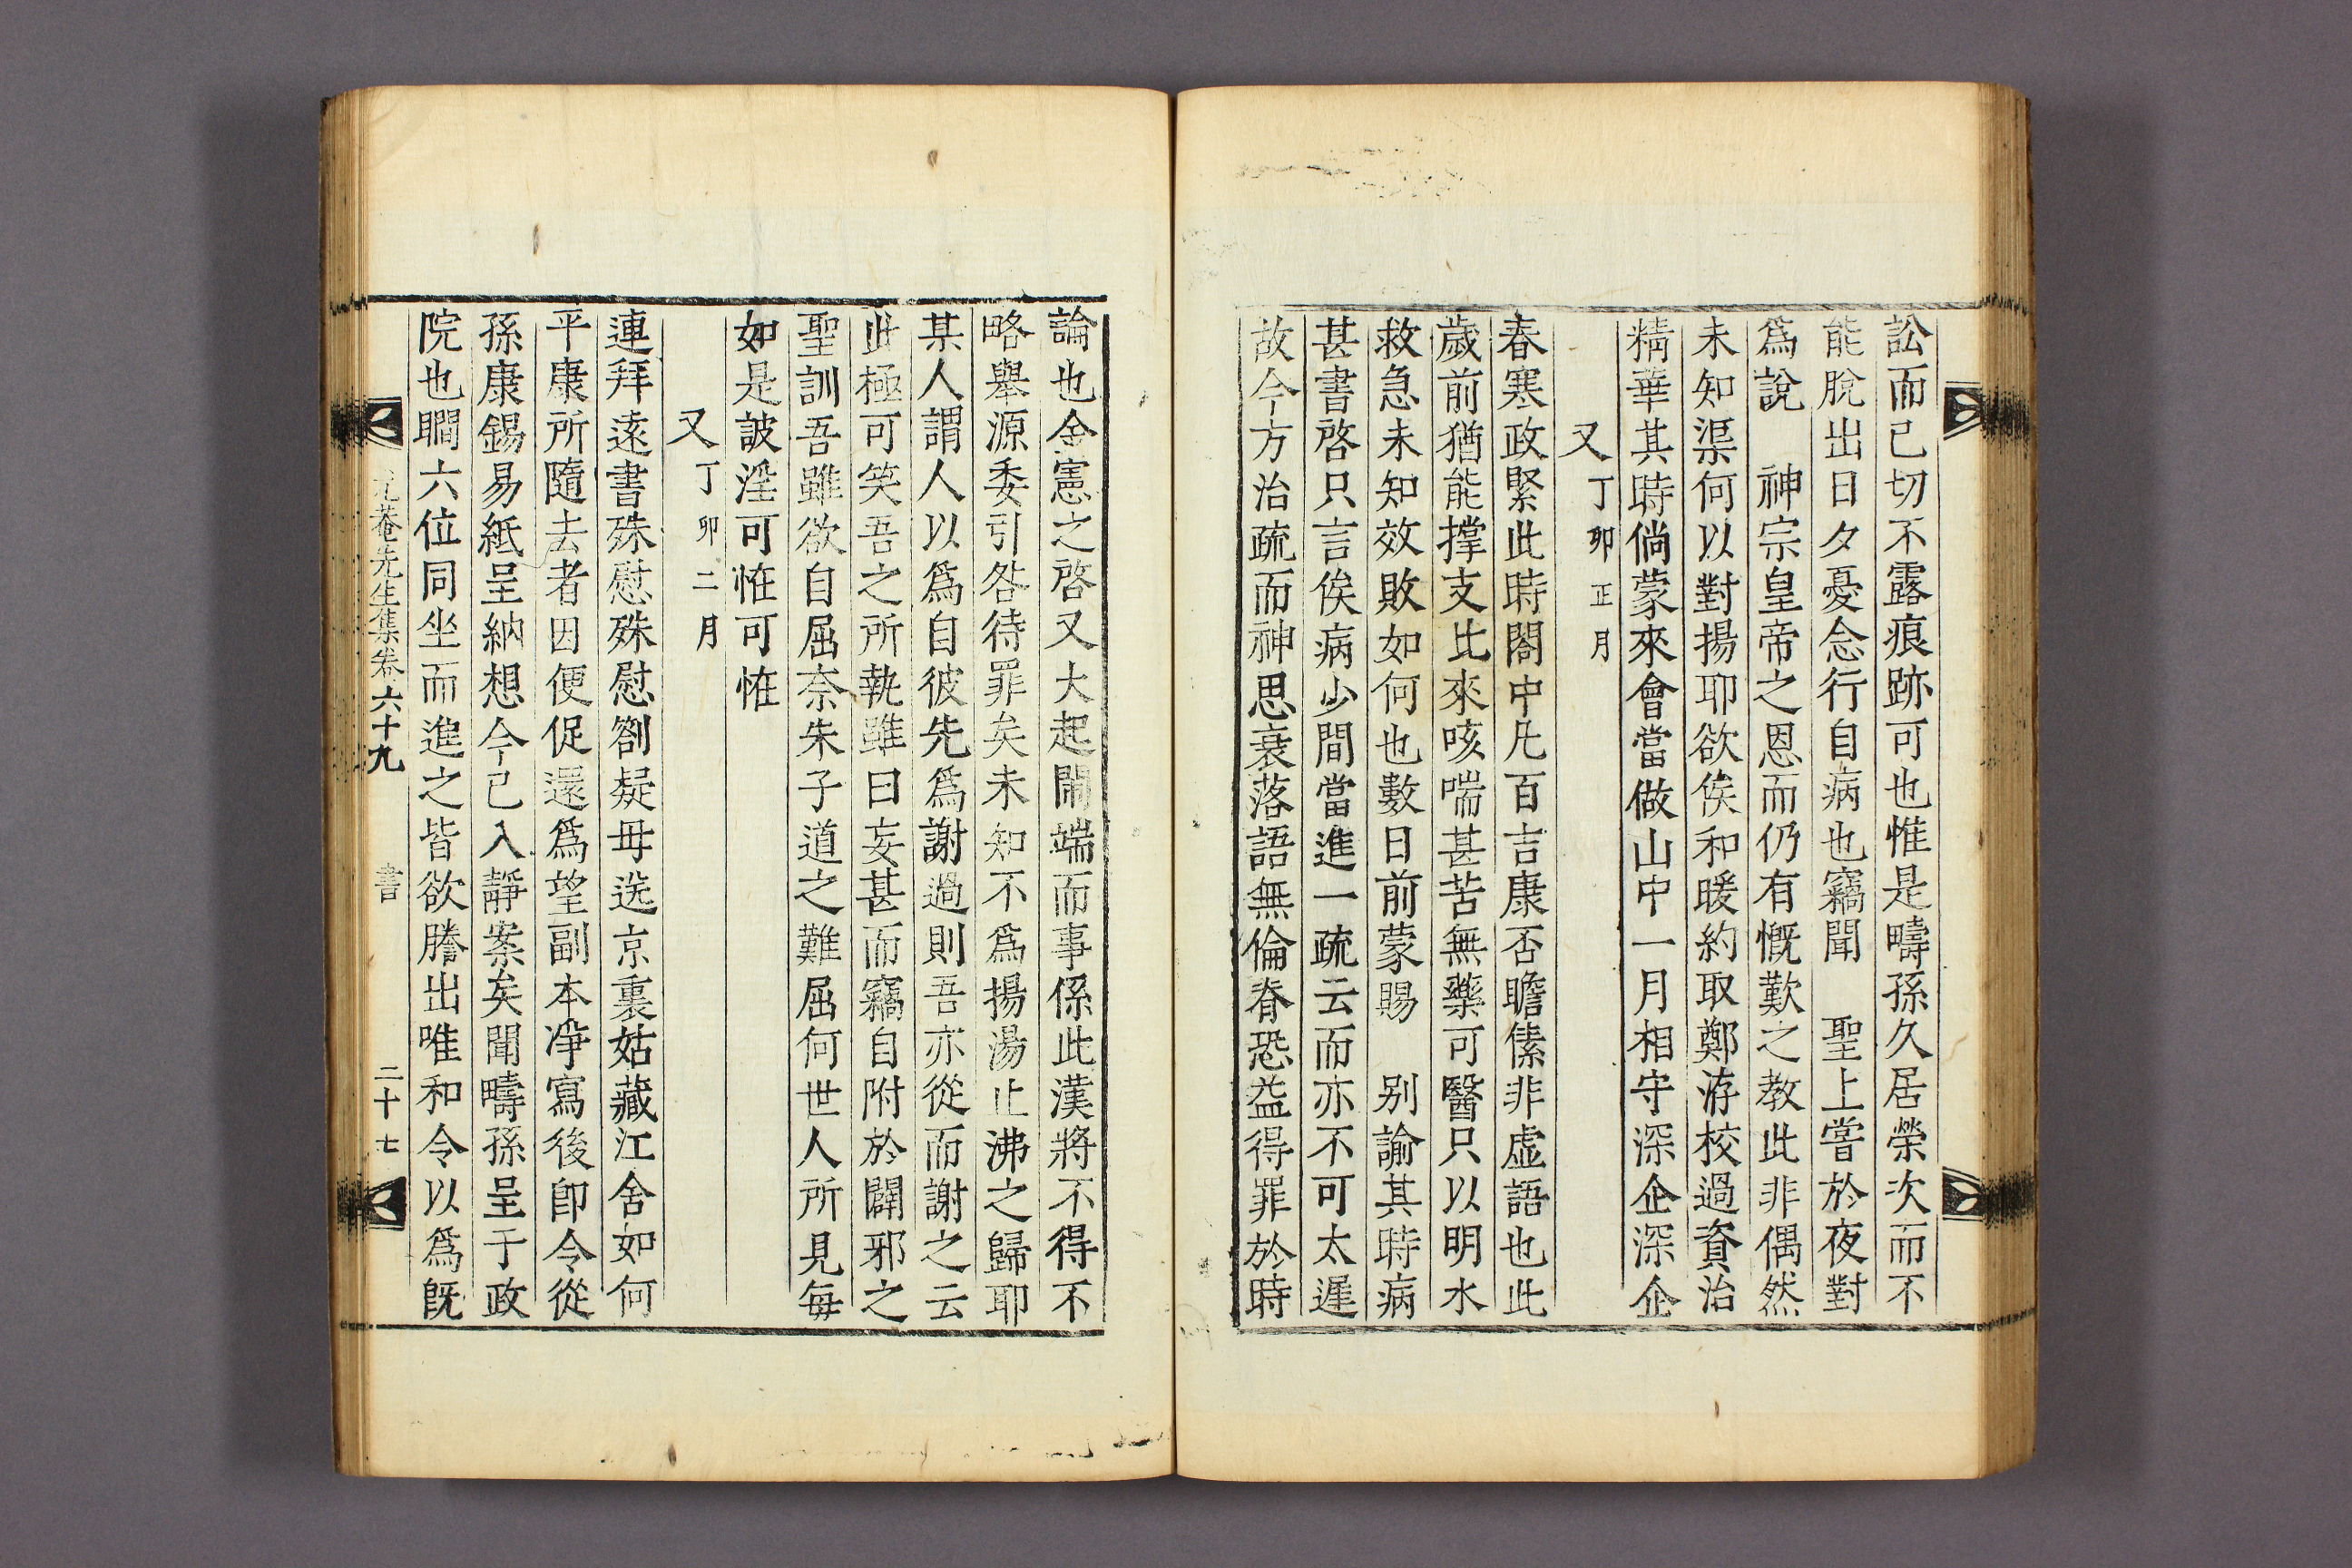 訟而已切不露痕跡可也惟是疇孫久居榮次而不
能脫出日夕憂念行自病也竊聞　聖上嘗於夜對
爲說　神宗皇帝之恩而仍有慨歎之敎此非偶然
未知渠何以對揚耶欲俟和暖約取鄭游校過資治
精華其時倘蒙來會當做山中一月相守深企深企
又丁卯正月
春寒政緊此時閤中凡百吉康否瞻傃非虛語也此
歲前猶能撑支比來咳喘甚苦無藥可醫只以明水
救急未知效敗如何也數日前蒙賜　別諭其時病
甚書啓只言俟病少間當進一疏云而亦不可太遲
故今方治疏而神思衰落語無倫脊恐益得罪於時
論也金憲之啓又大起鬧端而事係此漢將不得不
略擧源委引咎待罪矣未知不爲揚湯止沸之歸耶
某人謂人以爲自彼先爲謝過則吾亦從而謝之云
此極可笑吾之所執雖曰妄甚而竊自附於闢邪之
聖訓吾雖欲自屈奈朱子道之難屈何世人所見每
如是詖淫可恠可恠
又丁卯二月
連拜遠書殊慰殊慰劄疑毋送京裏姑藏江舍如何
平康所隨去者因便促還爲望副本凈寫後卽令從
孫康錫易紙呈納想今已入靜案矣聞疇孫呈于政
院也瞷六位同坐而進之皆欲謄出唯和令以爲旣
尤菴先生集卷六十九　書　二十七